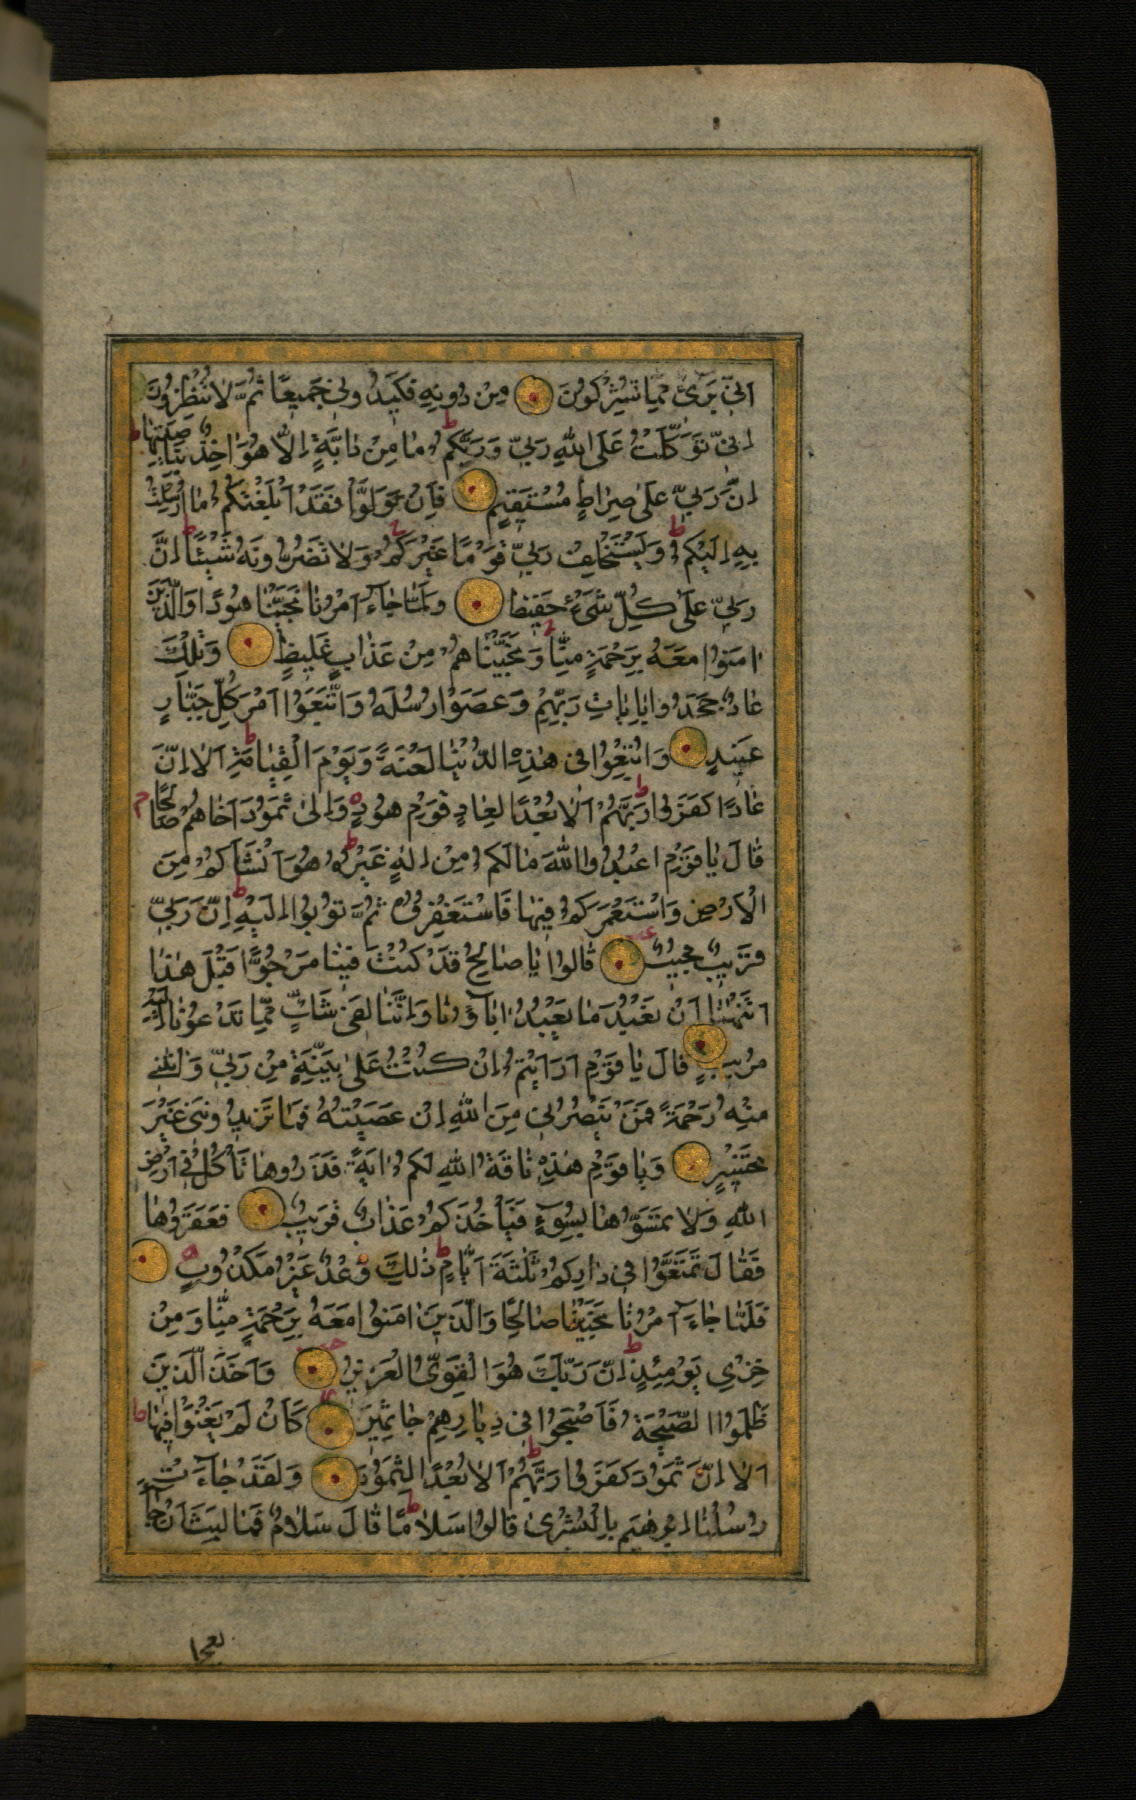 اَنِّى بَرِىءٌ مِمَّا تُشْرِكُونَ مِنْ دُونِهِ فَكِيدُونِى جَمِيعًا ثُمَّ لَا تُنْظِرُونِ
اِنِّى تَوَكَّلْتُ عَلَى اللّٰهِ رَبِّى وَرَبِّكُمْ ط مَا مِنْ دَابَّةٍ اِلَّا هُوَ اٰخِذٌ بِنَاصِيَتِهَا ط
اِنَّ رَبِّى عَلٰى صِرَاطٍ مُسْتَقِيمٍ فَاِنْ تَوَلَّوْا فَقَدْ اَبْلَغْتُكُمْ مَا اُرْسِلْتُ
بِهِ اِلَيْكُمْ ط وَيَسْتَخْلِفُ رَبِّى قَوْمًا غَيْرَكُمْ وَلَا تَضُرُّونَهُ شَيْئًا ط اِنَّ
رَبِّى عَلٰى كُلِّ شَىْءٍ حَفِيظٌ وَلَمَّا جَاءَ اَمْرُنَا نَجَّيْنَا هُودًا وَالَّذِينَ
اٰمَنُوا مَعَهُ بِرَحْمَةٍ مِنَّا وَنَجَّيْنَاهُمْ مِنْ عَذَابٍ غَلِيظٍ وَتِلْكَ
عَادٌ جَحَدُوا بِاٰيَاتِ رَبِّهِمْ وَعَصَوْا رُسُلَهُ وَاتَّبَعُوا اَمْرَ كُلِّ جَبَّارٍ
عَنِيدٍ وَاُتْبِعُوا فِى هٰذِهِ الدُّنْيَا لَعْنَةً وَيَوْمَ الْقِيَامَةِ ط اَلَا اِنَّ
عَادًا كَفَرُوا رَبَّهُمْ ط اَلَا بُعْدًا لِعَادٍ قَوْمِ هُودٍ وَاِلٰى ثَمُودَ اَخَاهُمْ صَالِحًا م
قَالَ يَا قَوْمِ اعْبُدُوا اللّٰهَ مَا لَكُمْ مِنْ اِلٰهٍ غَيْرُهُ ط هُوَ اَنْشَاَكُمْ مِنَ
الْاَرْضِ وَاسْتَعْمَرَكُمْ فِيهَا فَاسْتَغْفِرُوهُ ثُمَّ تُوبُوا اِلَيْهِ ط اِنَّ رَبِّى
قَرِيبٌ مُجِيبٌ قَالُوا يَا صَالِحُ قَدْ كُنْتَ فِينَا مَرْجُوًّا قَبْلَ هٰذَا
اَتَنْهٰينَا اَنْ نَعْبُدَ مَا يَعْبُدُ اٰبَاؤُنَا وَاِنَّنَا لَفِى شَكٍّ مِمَّا تَدْعُونَا اِلَيْهِ
مُرِيبٍ قَالَ يَا قَوْمِ اَرَاَيْتُمْ اِنْ كُنْتُ عَلٰى بَيِّنَةٍ مِنْ رَبِّى وَاٰتٰنِى
مِنْهُ رَحْمَةً فَمَنْ يَنْصُرُنِى مِنَ اللّٰهِ اِنْ عَصَيْتُهُ فَمَا تَزِيدُونَنِى غَيْرَ
تَخْسِيرٍ وَيَا قَوْمِ هٰذِهِ نَاقَةُ اللّٰهِ لَكُمْ اٰيَةً فَذَرُوهَا تَاْكُلْ فِى اَرْضِ
اللّٰهِ وَلَا تَمَسُّوهَا بِسُوءٍ فَيَاْخُذَكُمْ عَذَابٌ قَرِيبٌ فَعَقَرُوهَا
فَقَالَ تَمَتَّعُوا فِى دَارِكُمْ ثَلٰثَةَ اَيَّامٍ ط ذٰلِكَ وَعْدٌ غَيْرُ مَكْذُوبٍ
فَلَمَّا جَاءَ اَمْرُنَا نَجَّيْنَا صَالِحًا وَالَّذِينَ اٰمَنُوا مَعَهُ بِرَحْمَةٍ مِنَّا وَمِنْ
خِزْىِ يَوْمِئِذٍ ط اِنَّ رَبَّكَ هُوَ الْقَوِىُّ الْعَزِيزُ وَاَخَذَ الَّذِينَ
ظَلَمُوا الصَّيْحَةُ فَاَصْبَحُوا فِى دِيَارِهِمْ جَاثِمِينَ كَاَنْ لَمْ يَغْنَوْا فِيهَا ط
اَلَا اِنَّ ثَمُودَ كَفَرُوا رَبَّهُمْ ط اَلَا بُعْدًا لِثَمُودَ وَلَقَدْ جَاءَتْ
رُسُلُنَا اِبْرٰهِيمَ بِالْبُشْرٰى قَالُوا سَلَامًا ط قَالَ سَلَامٌ فَمَا لَبِثَ اَنْ جَاءَ
بعجل